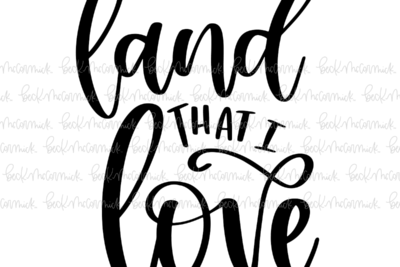 land
THAT I
love